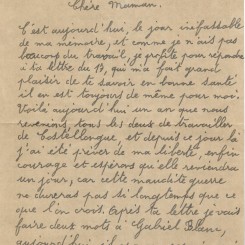 Chère Maman.
C'est aujourd'hui, le jour ineffassable
de ma mémoire, et comme je n'ais pas
beaucoup du travail, je profite pour répondre
à ta lettre du 17, qui m'a fait grand
plaisir de te savoir en bonne santé
il en est toujours de même pour moi.
Voilà aujourd'hui un an que nous
revenions tous les deux de travailler
de Castellongue et depuis ce jour là
j'ai été priver de ma liberté, enfin
courage et espérons qu'elle reviendra
un jour, car cette maudite guerre
ne dureras pas si longtemps que ce
que l'on croit. Après ta lettre je vais
faire deux mots à Gabriel Blanc,
aujourd'hui il